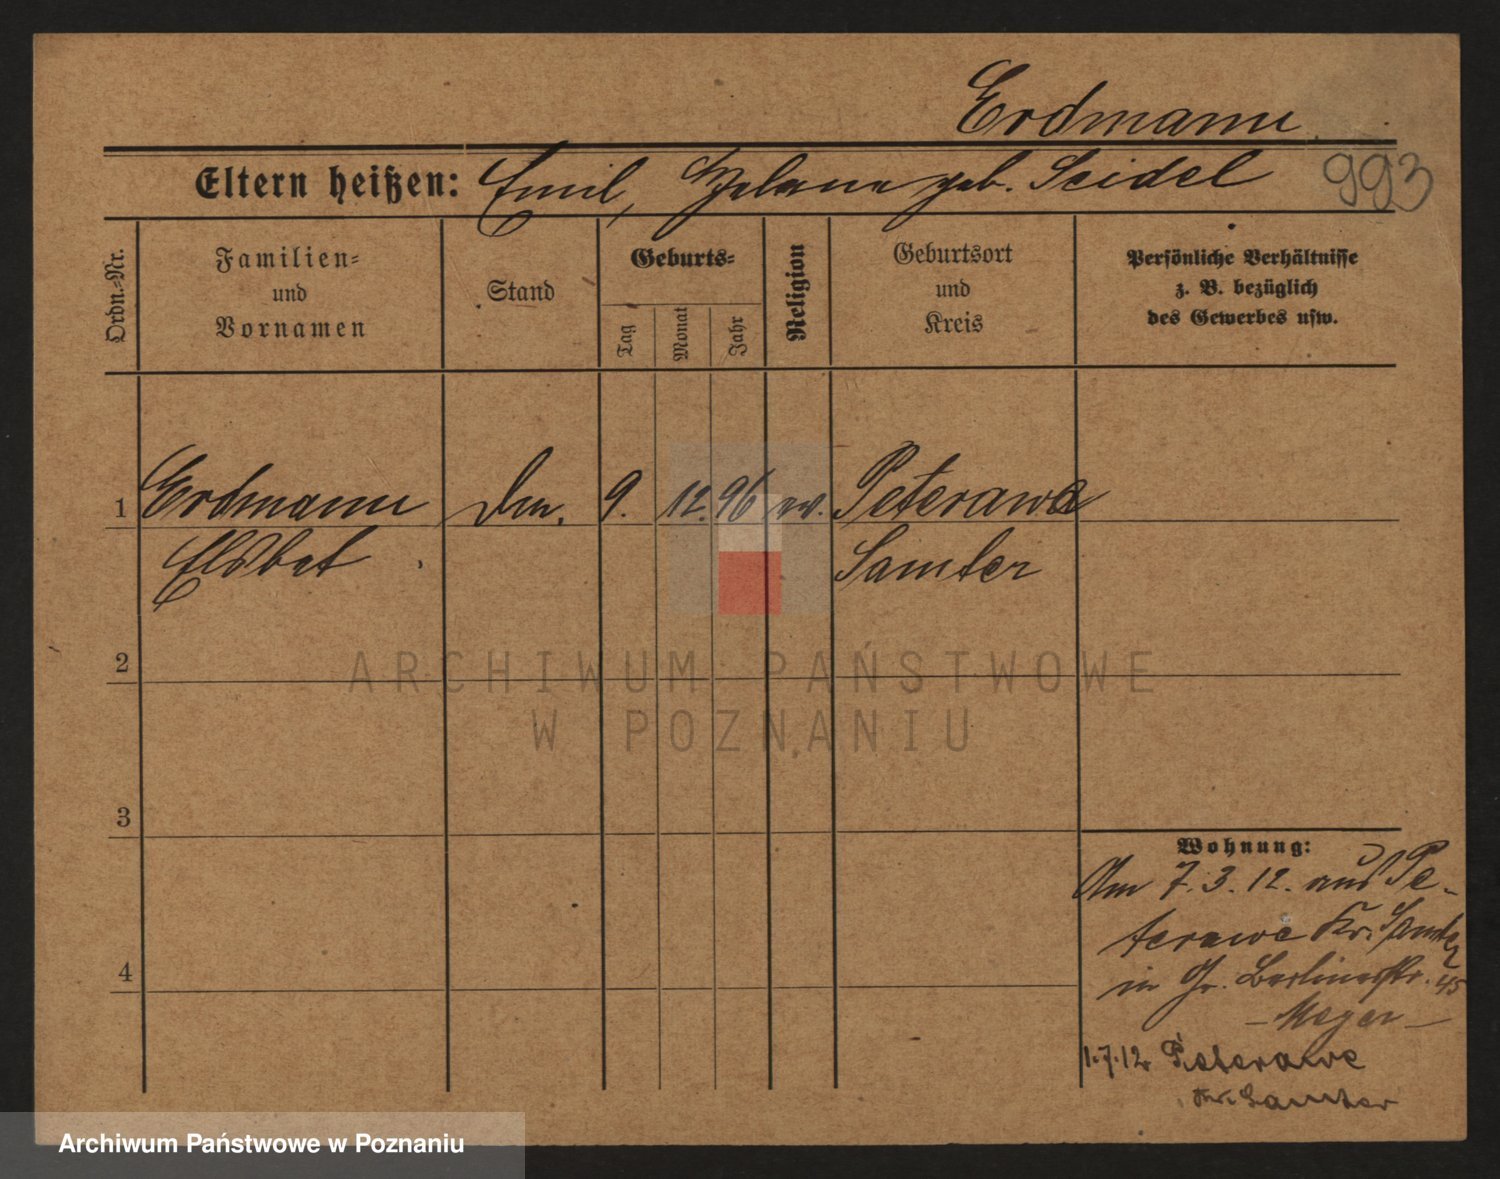 Erdmann
993
Eltern heißen: Emil, Helene geb. Seidel
Ordn.-Nr.
Familien-
und
Vornamen
Stand
Geburts-
Tag
Monat
Jahr
Religion
Geburtsort
und
Kreis
Persönliche Verhältnisse
z. B. bezüglich
des Gewerbes usw.
1 Erdmann 9. 12. 96 ev. Peterawe
Elsbet Samter
2
3
4
Wohnung:
Am 7.3.12. aus Pe-
terawe Kr. Samter
in Gr. Berlinerstr. 45
- Meyer -
1.7.12 Peterawe
Kr. Samter
ARCHIWUM PAŃSTWOWE
W POZNANIU
Archiwum Państwowe w Poznaniu